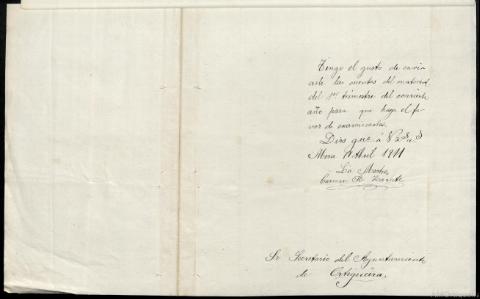 Tengo el gusto de envia
arle las cuentas del material
del 1er trimestre del corriente
año para que haga el fa-
vor de examinarlas.
Dios gue á V
Mera Abril 1911
La Maestra,
Carmen
Sr Secretario del Ayuntamiento
de Ortigueira.